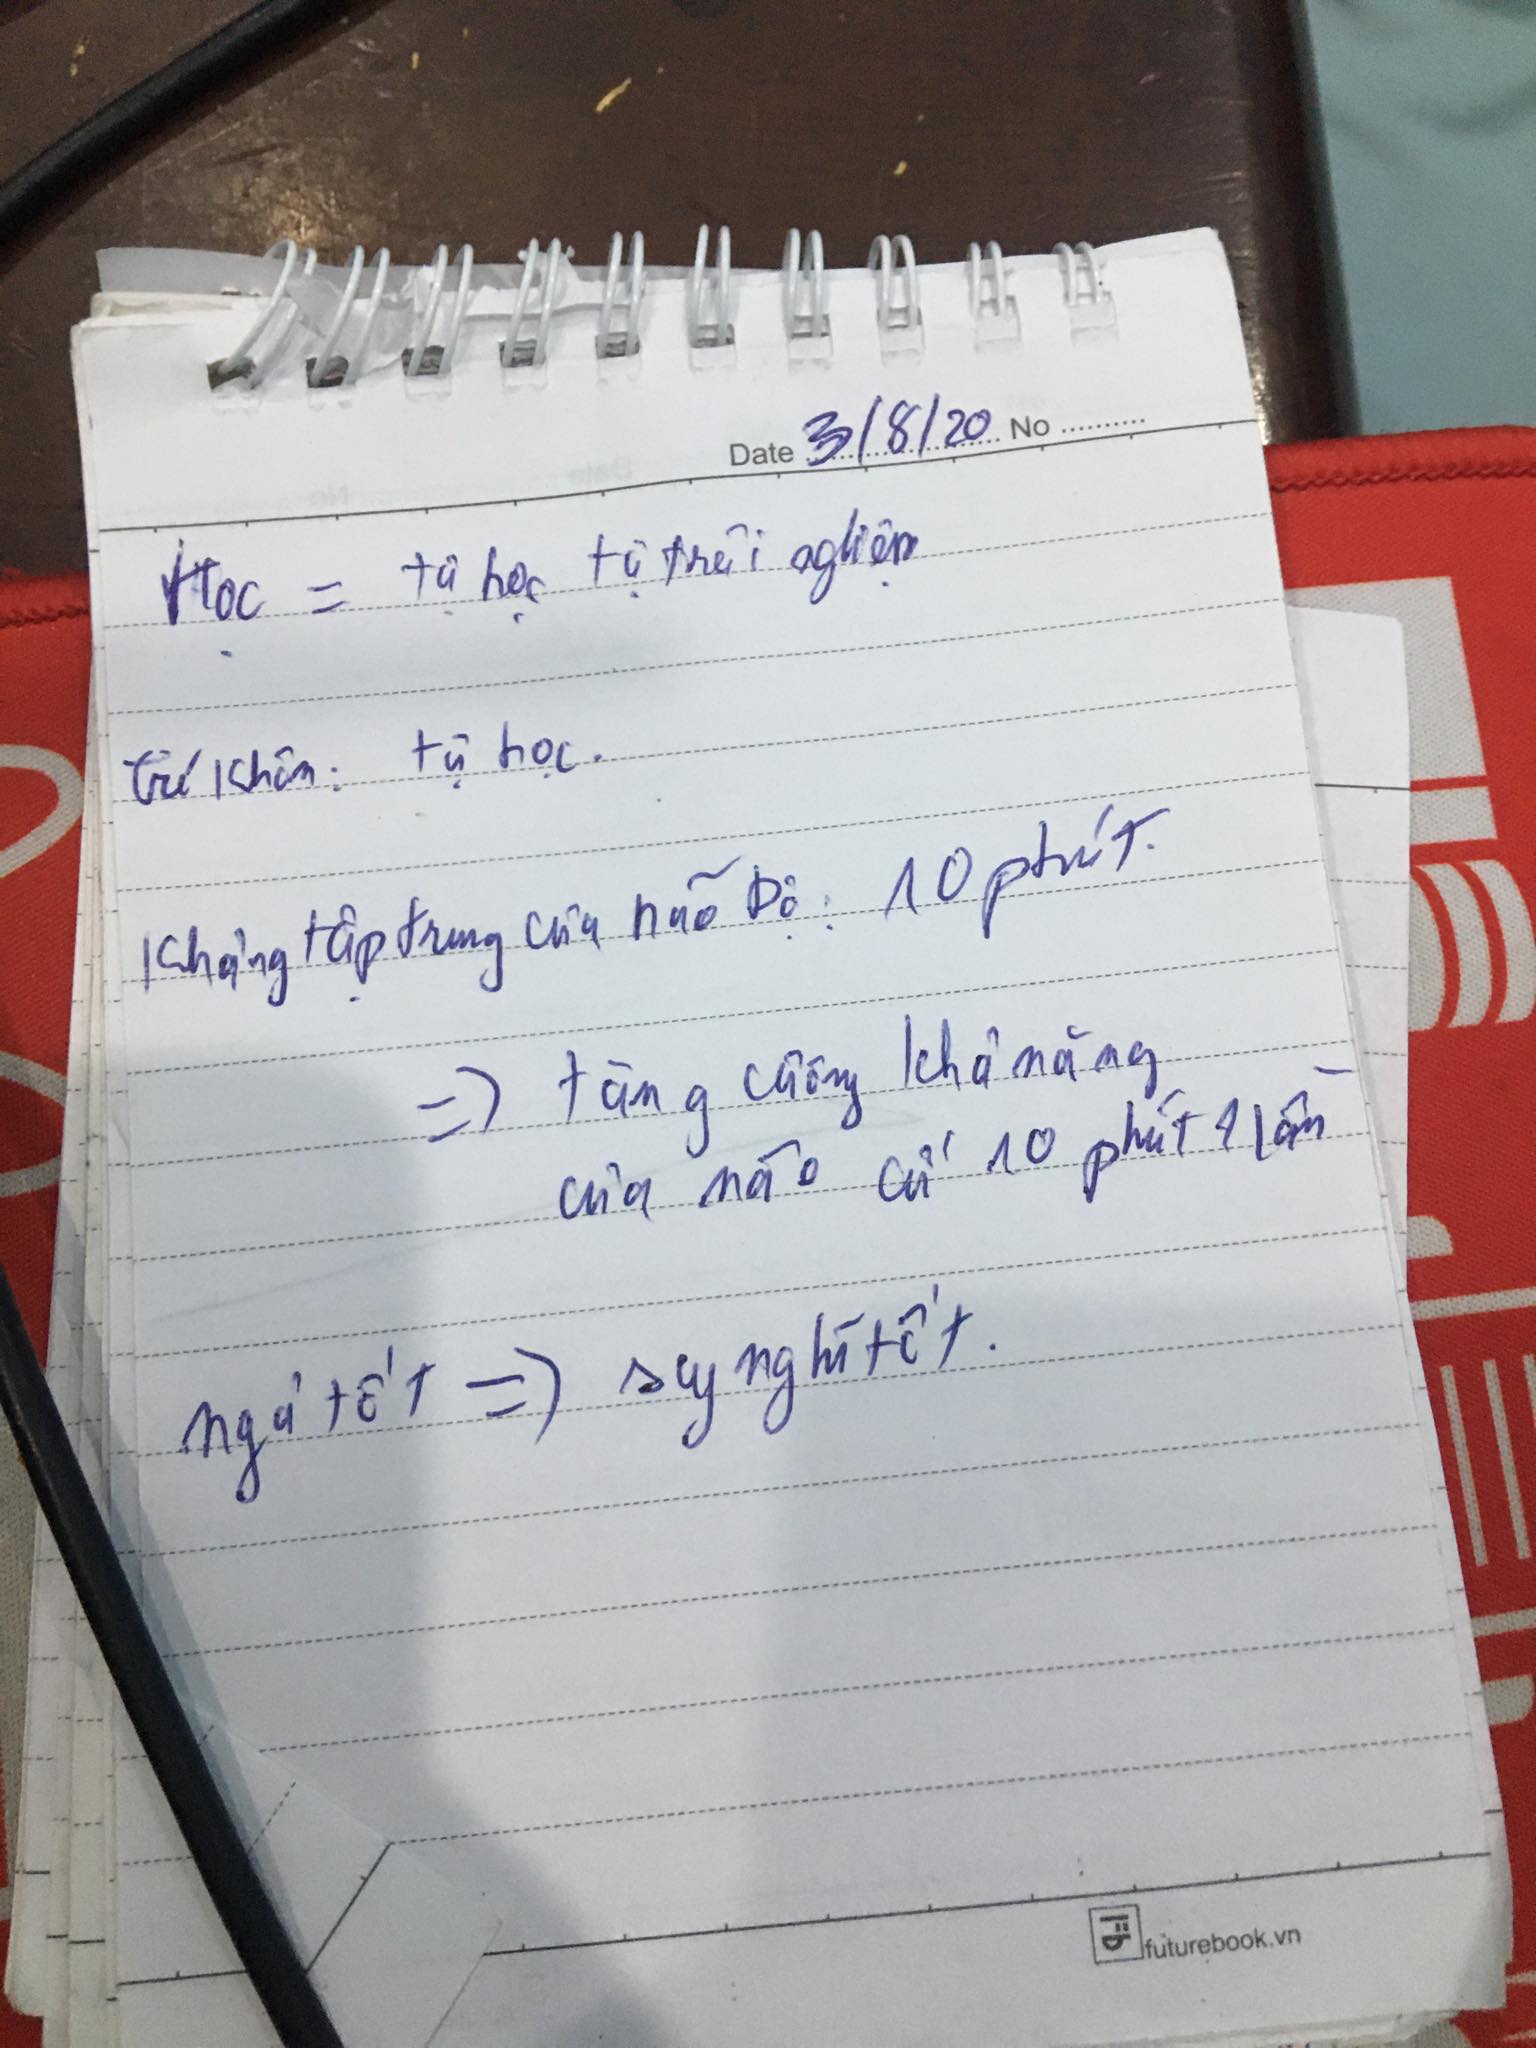 Date 3/8/20 No
Học = tự học tự trải nghiệm
trí khôn: tự học.
Khảng tập trung của não bộ: 10 phút.
=> tăng cường khả năng
của não cứ 10 phút 1 lần
ngủ tốt => suy nghĩ tốt.
futurebook.vn